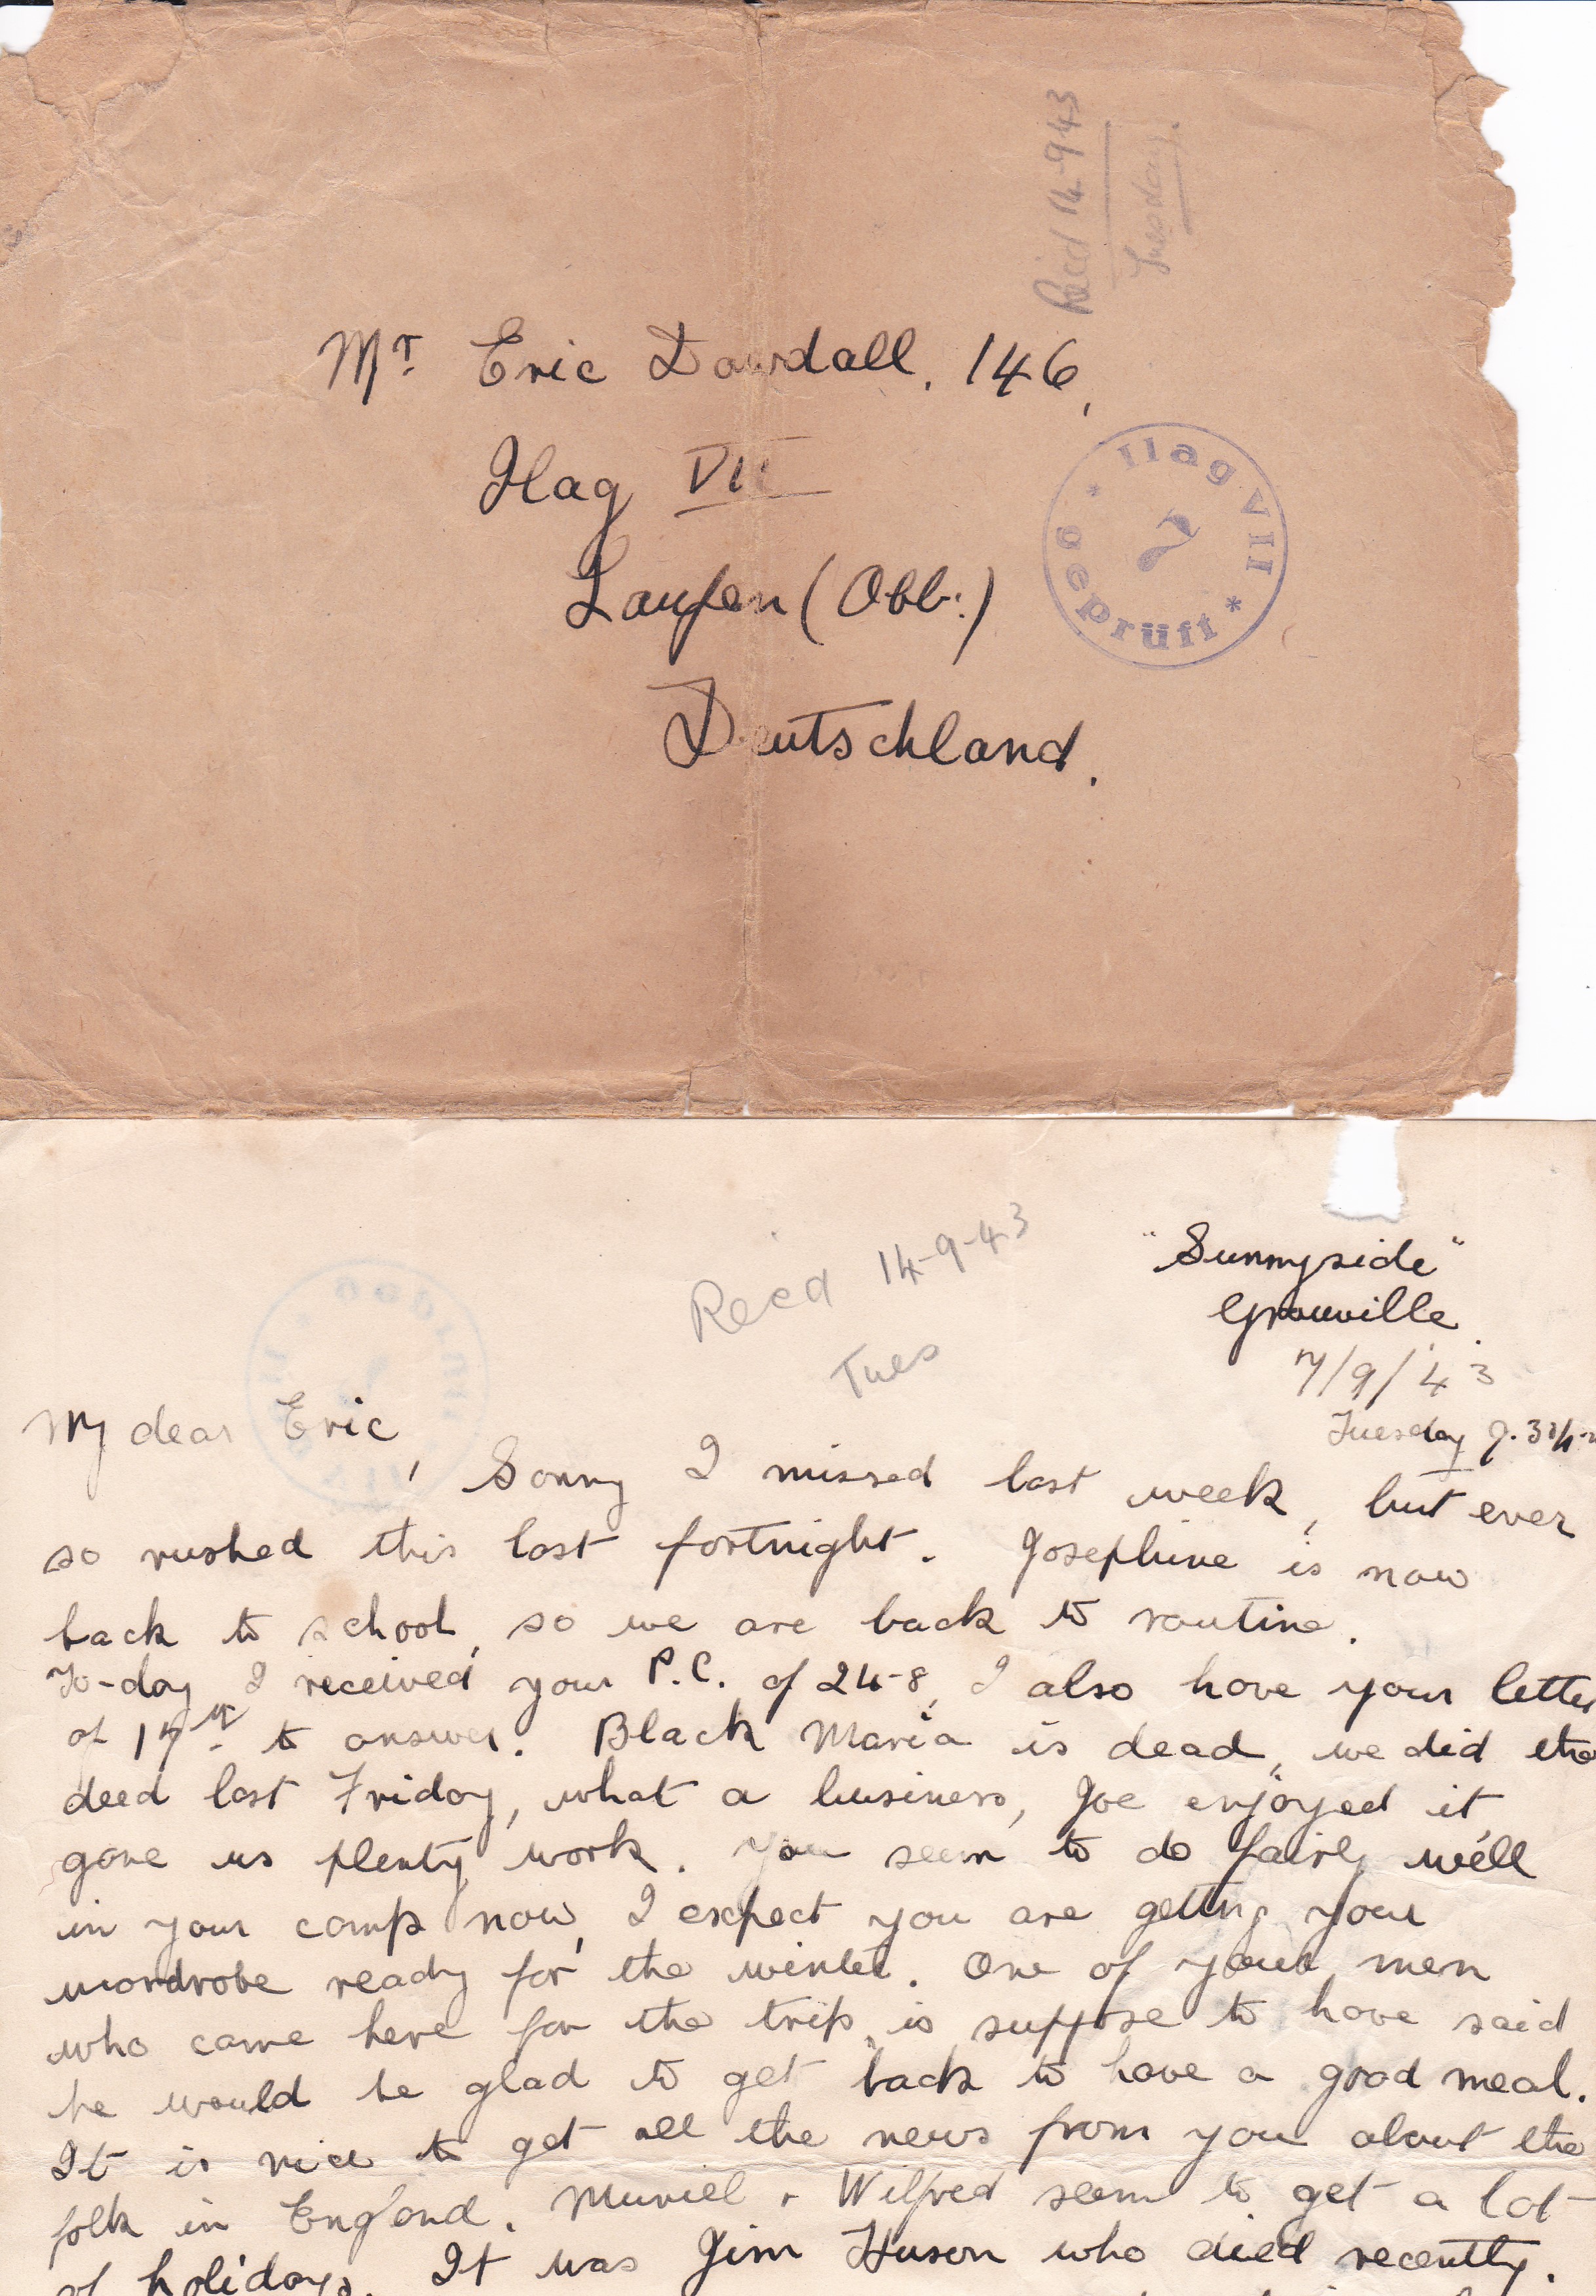 Recd 14-9-43
Tuesday.
Mr. Eric Dowdall. 146,
Ilag VII
Laufen (Obb:)
Deutschland.
* Ilag VII * geprüft
7
"Sunnyside"
Grouville.
7/9/43
Tuesday
Recd 14-9-43
Tues
My dear Eric,
Sorry I missed last week, but ever
so rushed this last fortnight. Josephine is now
back to school, so we are back to routine.
To-day I received your P.C. of 24-8, I also have your letter
of 17th to answer. Black Maria is dead, we did the
deed last Friday, what a business, Joe enjoyed it,
gave us plenty work. You seem to do fairly well
in your camp now, I expect you are getting your
wardrobe ready for the winter. One of your men
who came here for the trip, is suppose to have said
he would be glad to get back to have a good meal.
It is nice to get all the news from you about the
folk in England. Muriel & Wilfred seem to get a lot
of holidays. It was Jim Huson who died recently.